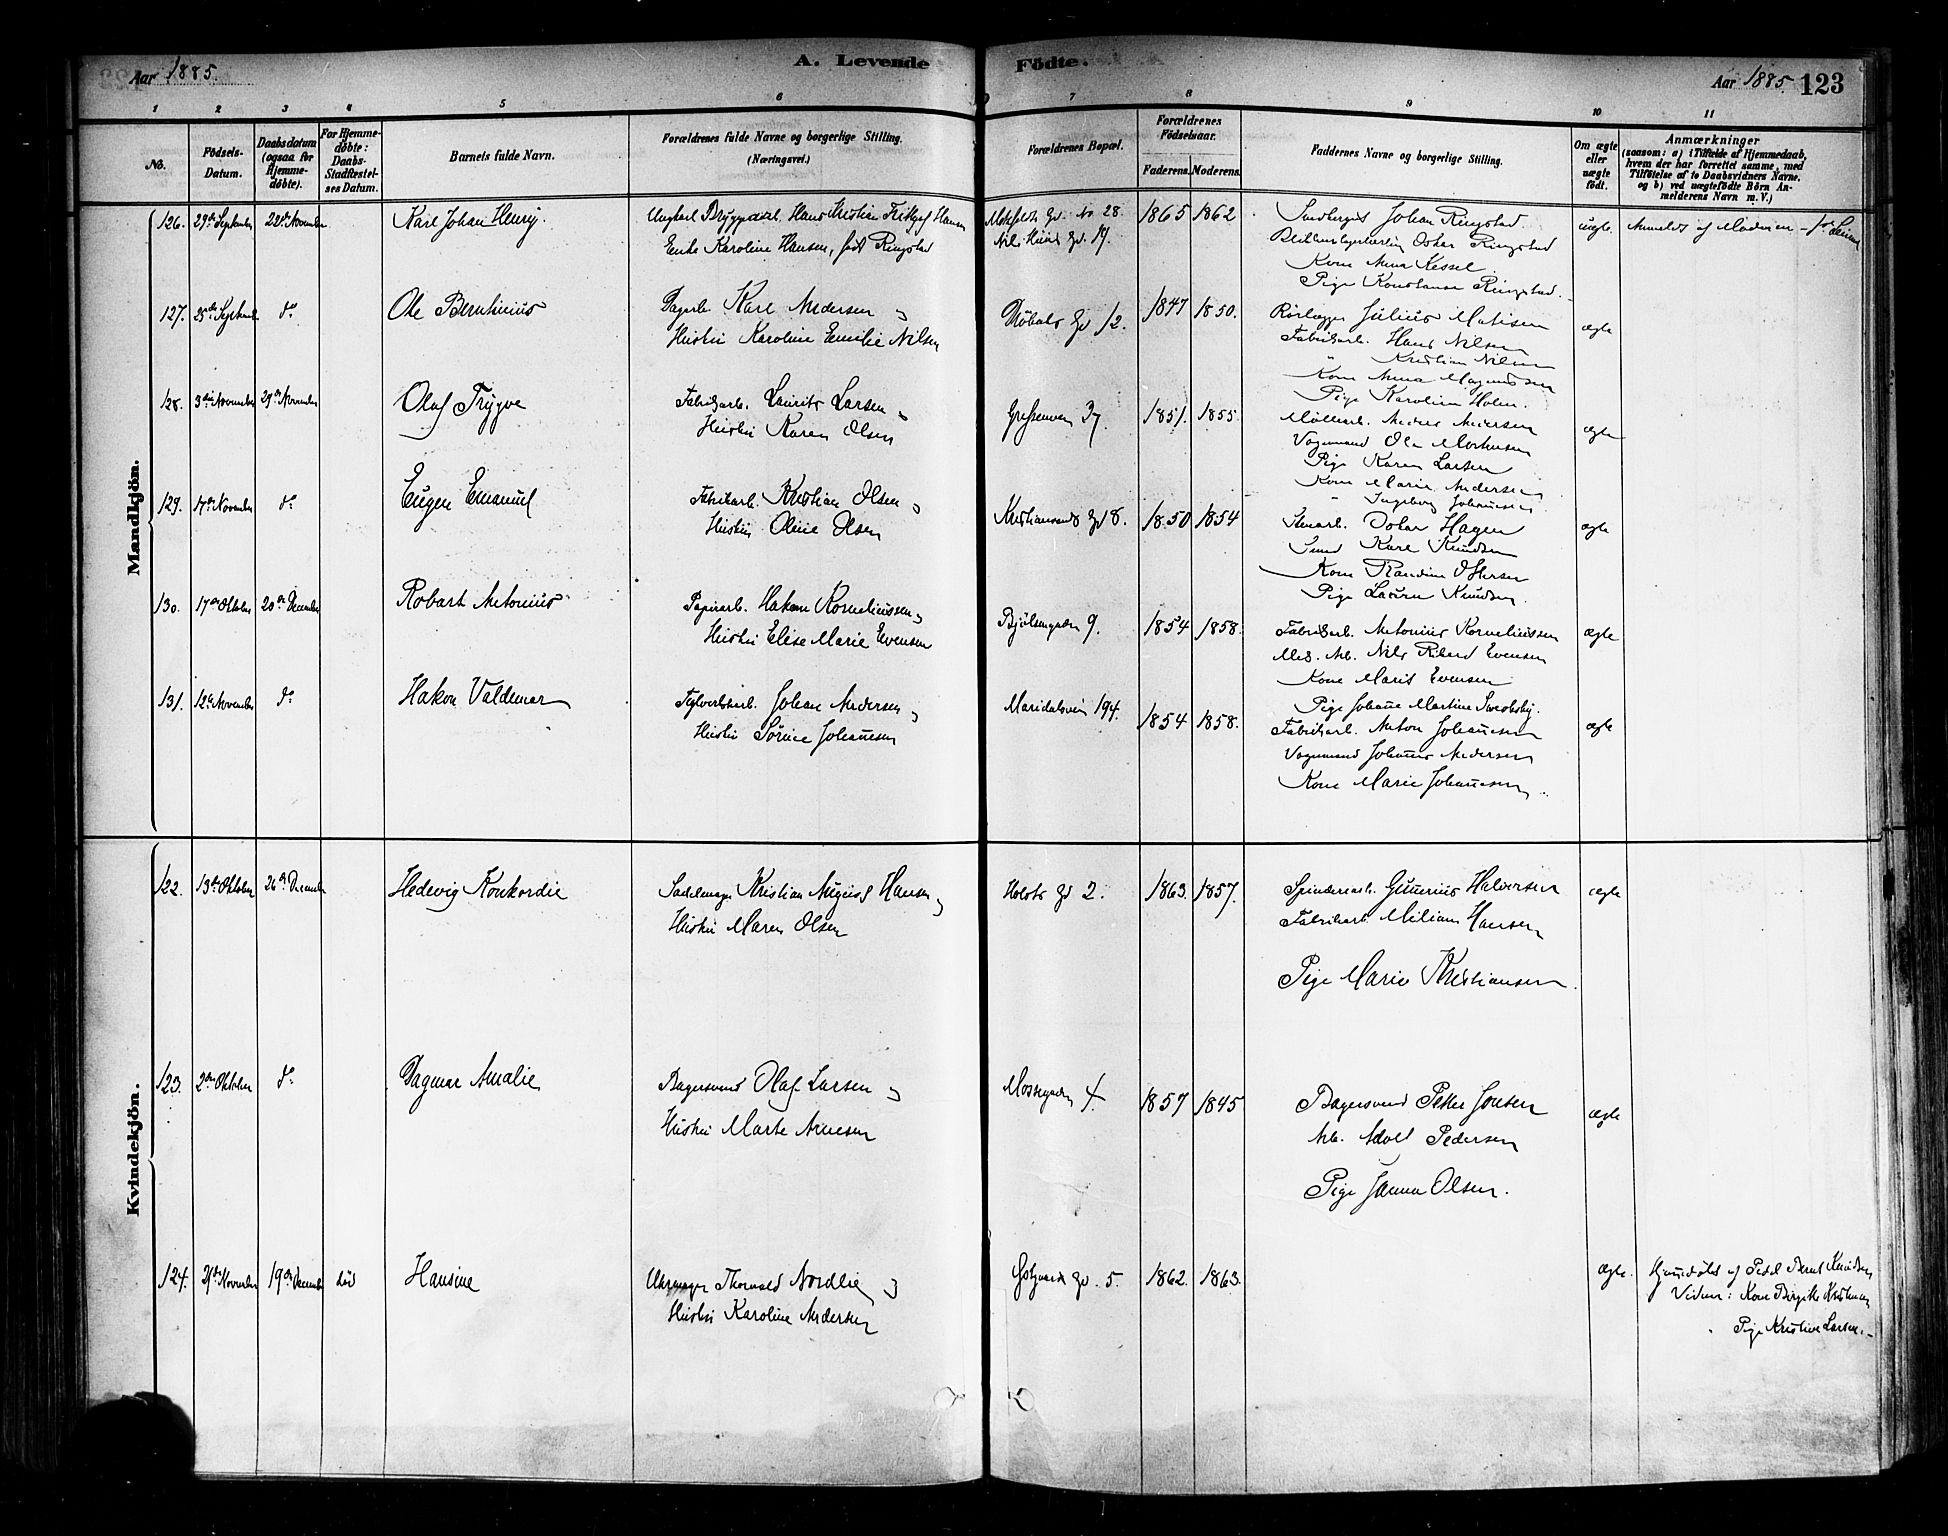 Aar 1885.
A. Levende Födte.
Aar 1885. 123
1 2 3 4 5 6 7 8 9 10 11
No.
Födsels-Datum.
Daabsdatum (ogsaa for Hjemme-döbte).
For Hjemme-döbte: Daabs-Stadfæstel-ses Datum.
Barnets fulde Navn.
Forældrenes fulde Navne og borgerlige Stilling. (Næringsvei.)
Forældrenes Bopæl.
Forældrenes Födselsaar.
Faderens. Moderens.
Faddernes Navne og borgerlige Stilling.
Om ægte eller uægte födt.
Anmærkninger
(saasom: a) i Tilfælde af Hjemmedaab,
hvem der har forrettet samme, med
Tilföielse af to Daabsvidners Navne,
og b) ved uægtefödte Börn An-
melderens Navn m. V.)
Mandkjön.
126. 29de September 22de November Karl Johan Henry Ungkarl Bryggearb. Hans Kristian Fritjof Hansen No 28. 1865 1862 Johan Ringstad uægte. Anmeldt af Moderen
Enke Karoline Hansen, født Ringstad Gd. 19. Oskar Ringstad
Kone Anna Kessel
Pige Konstanse Ringstad.
127. 25de Septemb do Ole Bernhinius Dagarb. Karl Andersen og Gd 12. 1847 1850. Rørlægger Julius Matisen ægte
Hustru Karoline Emilie Nilsen Fabrikarb. Hans Nilsen
" Kristian Nilsen
Kone Anna Magnussen
Pige Karoline Holm.
128. 3die November 29de November Olaf Trygve Fabrikarb. Laurits Larsen og Grefsenveien 37. 1851. 1855. Møllearb. Anders Andersen ægte
Hustru Karen Olsen Vognmand Ole Mortensen
Pige Karen Larsen
Kone Marie Andersen
" Ingeborg Johannesen
129. 17de November do Eugen Emanuel Fabrikarb. Kristian Olsen og Kristiansands Gd 8. 1850 1854 Stenarb. Oskar Hagen ægte
Hustru Oline Olsen Smed Karl Knudsen
Kone Randine Ottersen
Pige Laura Knudsen.
130. 17de Oktober 20de December Robart Antonius Papirarb. Hakon Korneliussen og Bjølsengaden 9. 1854 1858. Fabrikarb. Antonius Korneliussen ægte
Hustru Elise Marie Evensen Mek. Arb. Nils Rikard Evensen
Kone Marit Evensen
Pige Johanne Martine
131. 12te November do Hakon Valdemar Teglverksarb. Johan Andersen og Maridalsveien 194. 1854 1858. Fabrikarb. Anton Johannesen ægte
Hustru Sørine Johannesen Vognmand Johannes Andersen
Kone Marie Johannesen
Kvindekjön.
122. 13de Oktober 26de December Hedevig Konkordie Sadelmager Kristian August Hansen og Holsts Gd 2. 1863. 1857. Spinderiarb. Gunerius Halversen ægte
Hustru Maren Olsen Fabrikarb. Miliam Hansen
Pige Marie Kristiansen.
123. 2den Oktober do Dagmar Amalie Bagersvend Olaf Larsen og Mossegaden 4. 1857 1845 Bagersvend Peter Jonsen ægte
Hustru Marte Arnesen Arb. Adolf Pedersen
Pige Janna Olsen.
124. November 19de December død Hansine Uhrmager Thorvald Nordlie og Gd. 5. 1862. 1863. ægte. Hjemdøbt af Bernt Knudsen
Hustru Karoline Andersen Vidner: Kone Birgitte Kristensen
Pige Kristine Larsen.